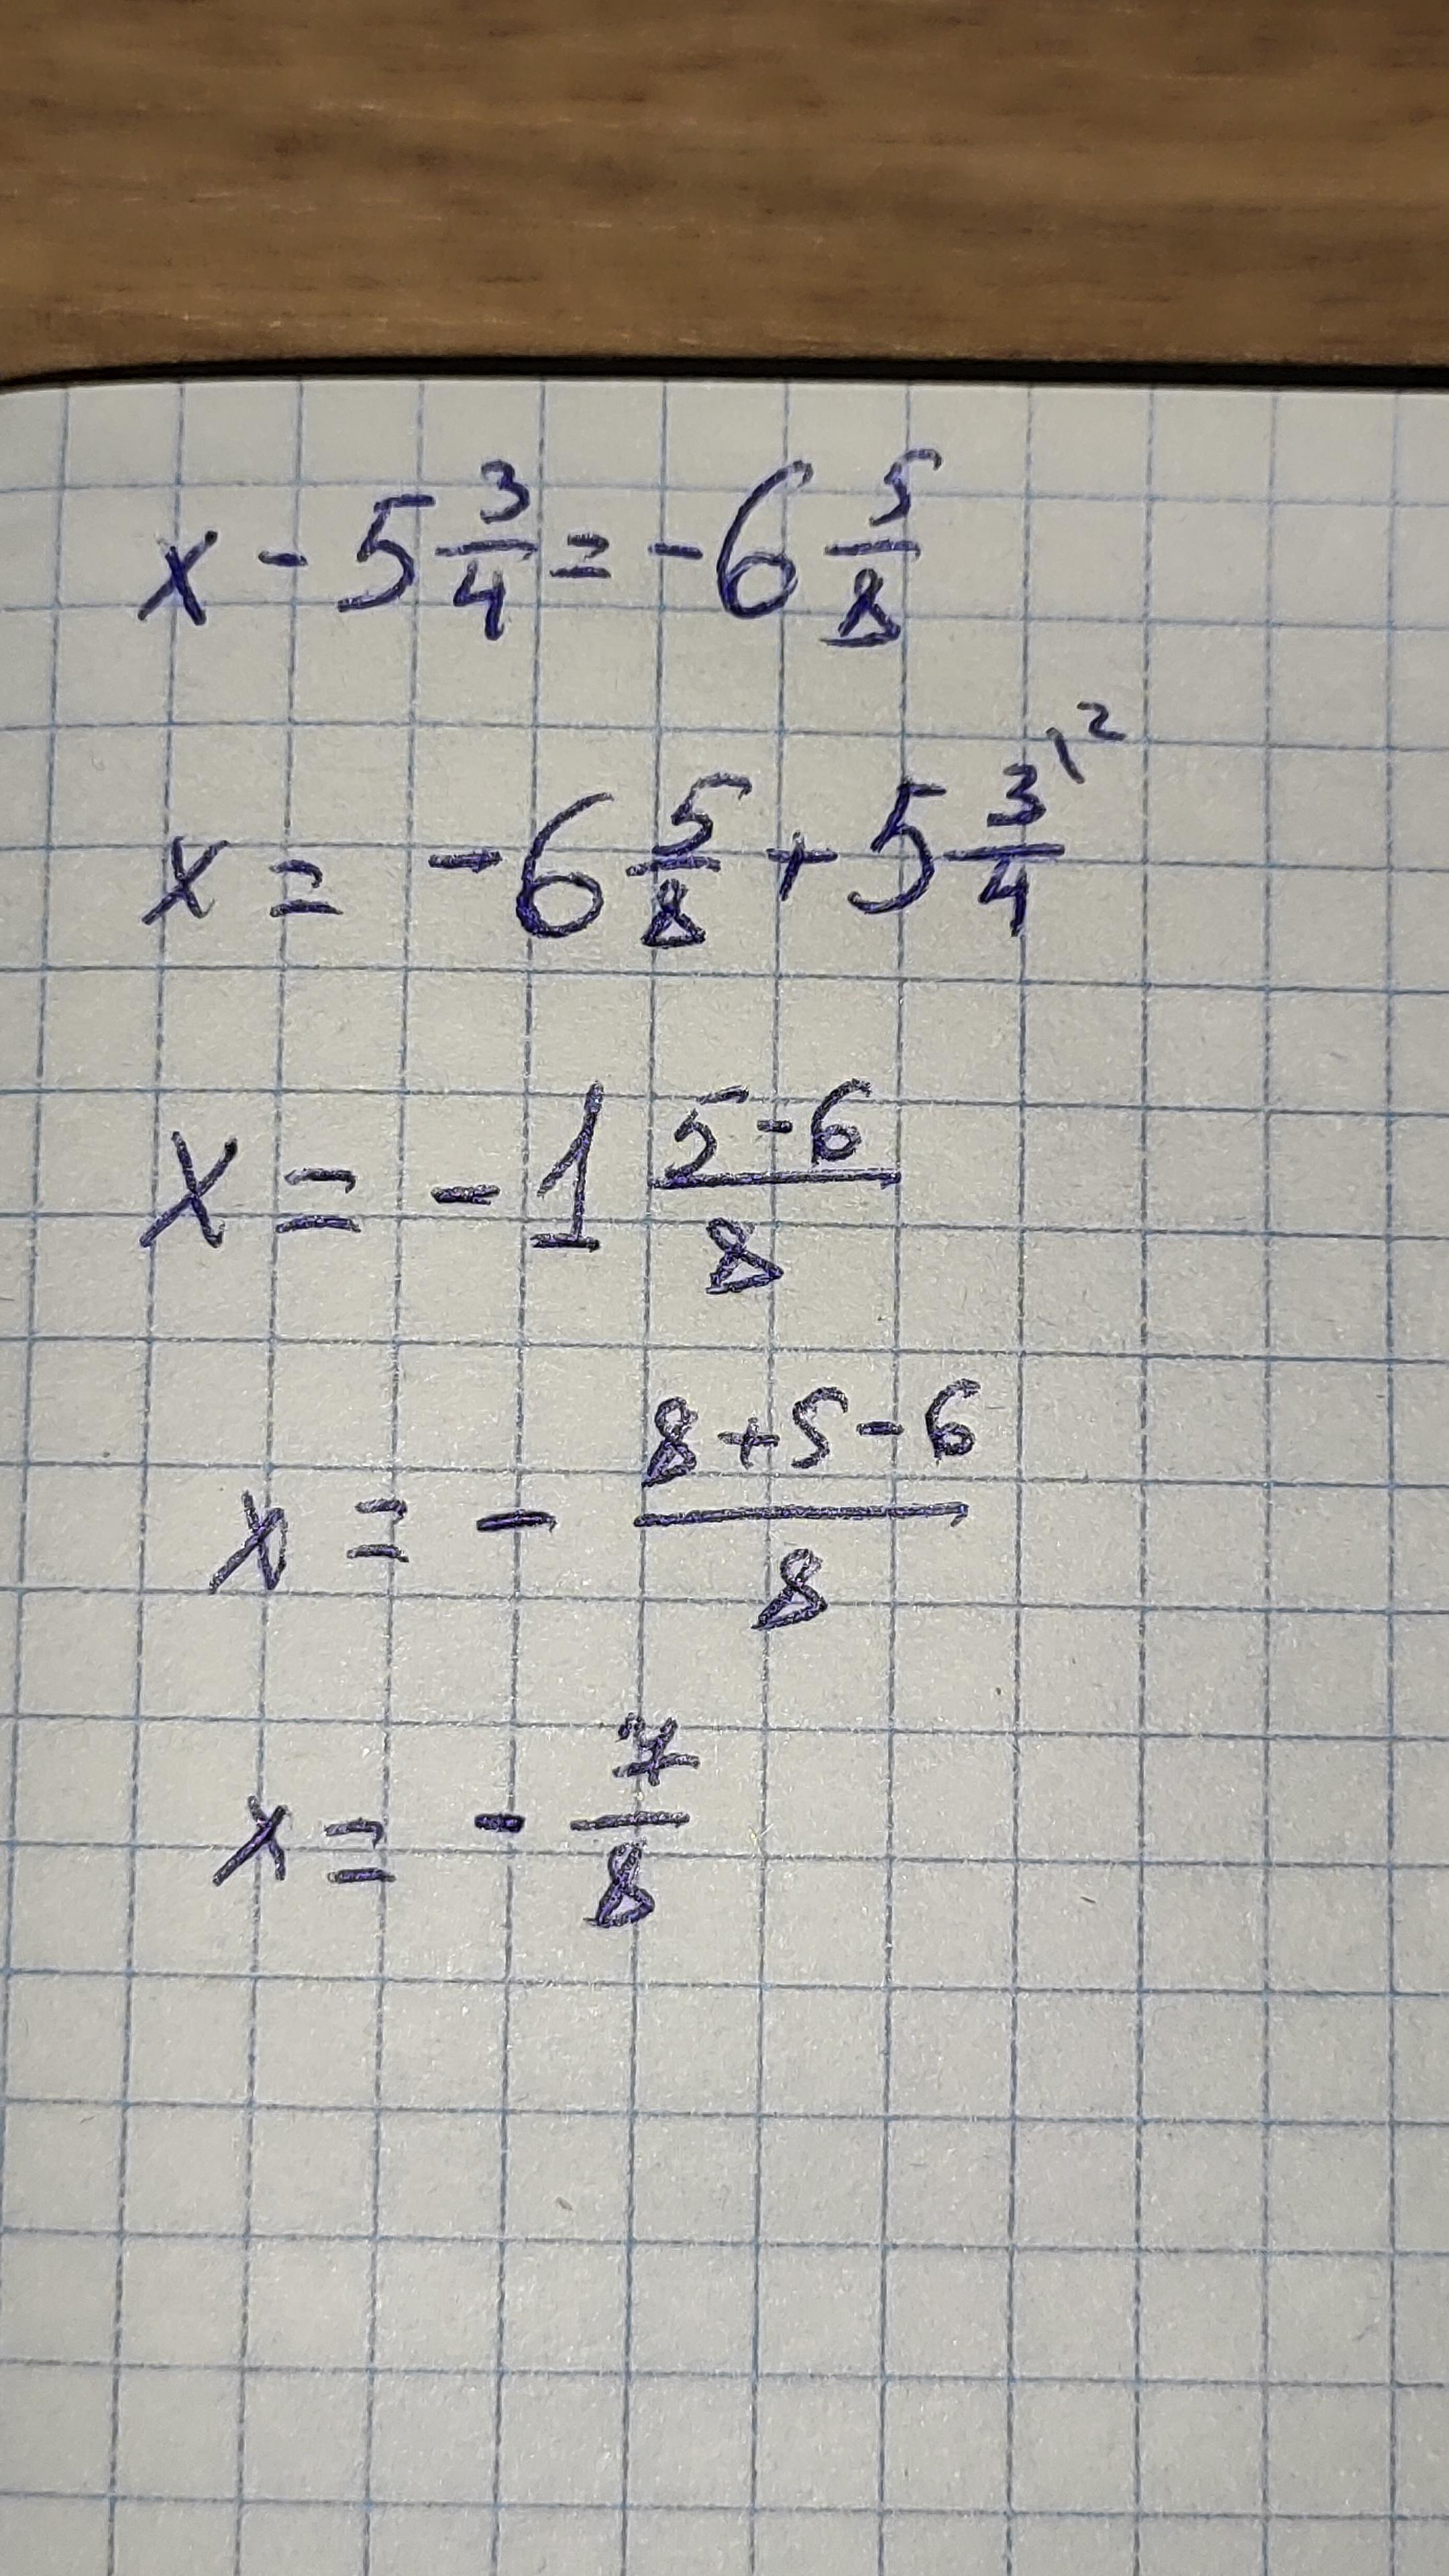 x - 5 3/4 = - 6 5/8
x = - 6 5/8 + 5 3/4 \2
x = - 1 (5-6)/8
x = - (8+5-6)/8
x = - 7/8